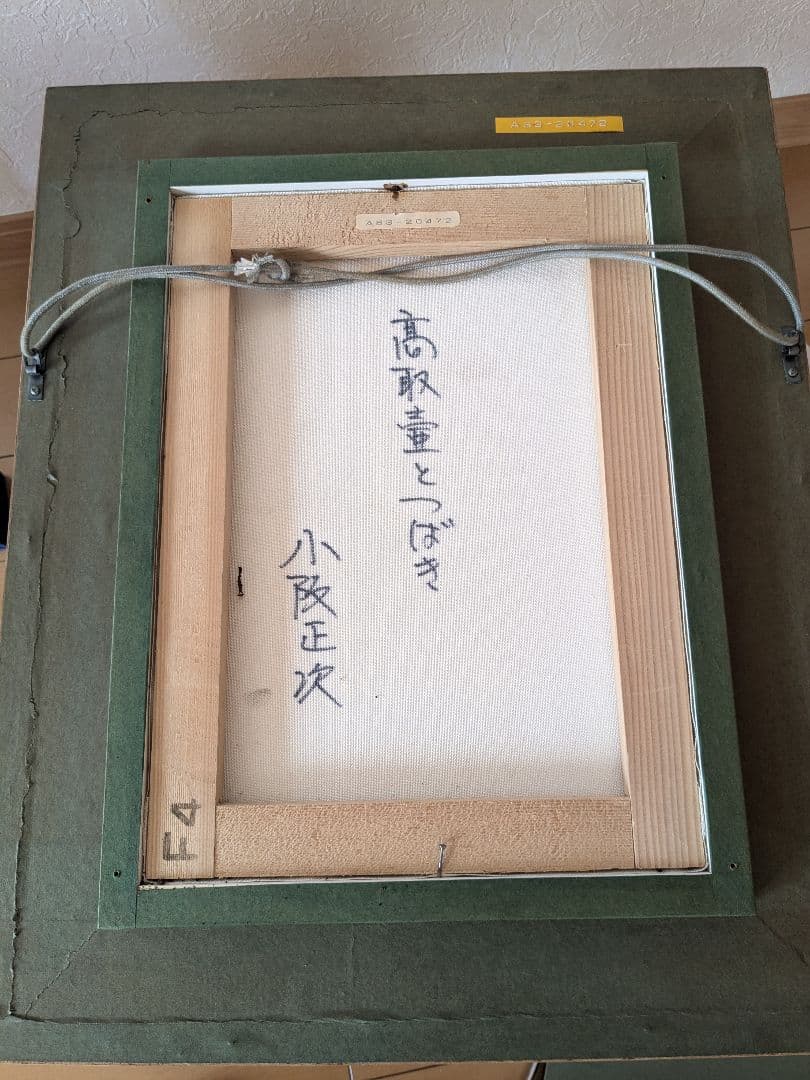 A83-20472
A83-20472
髙取壷とつばき
小阪正次
F4